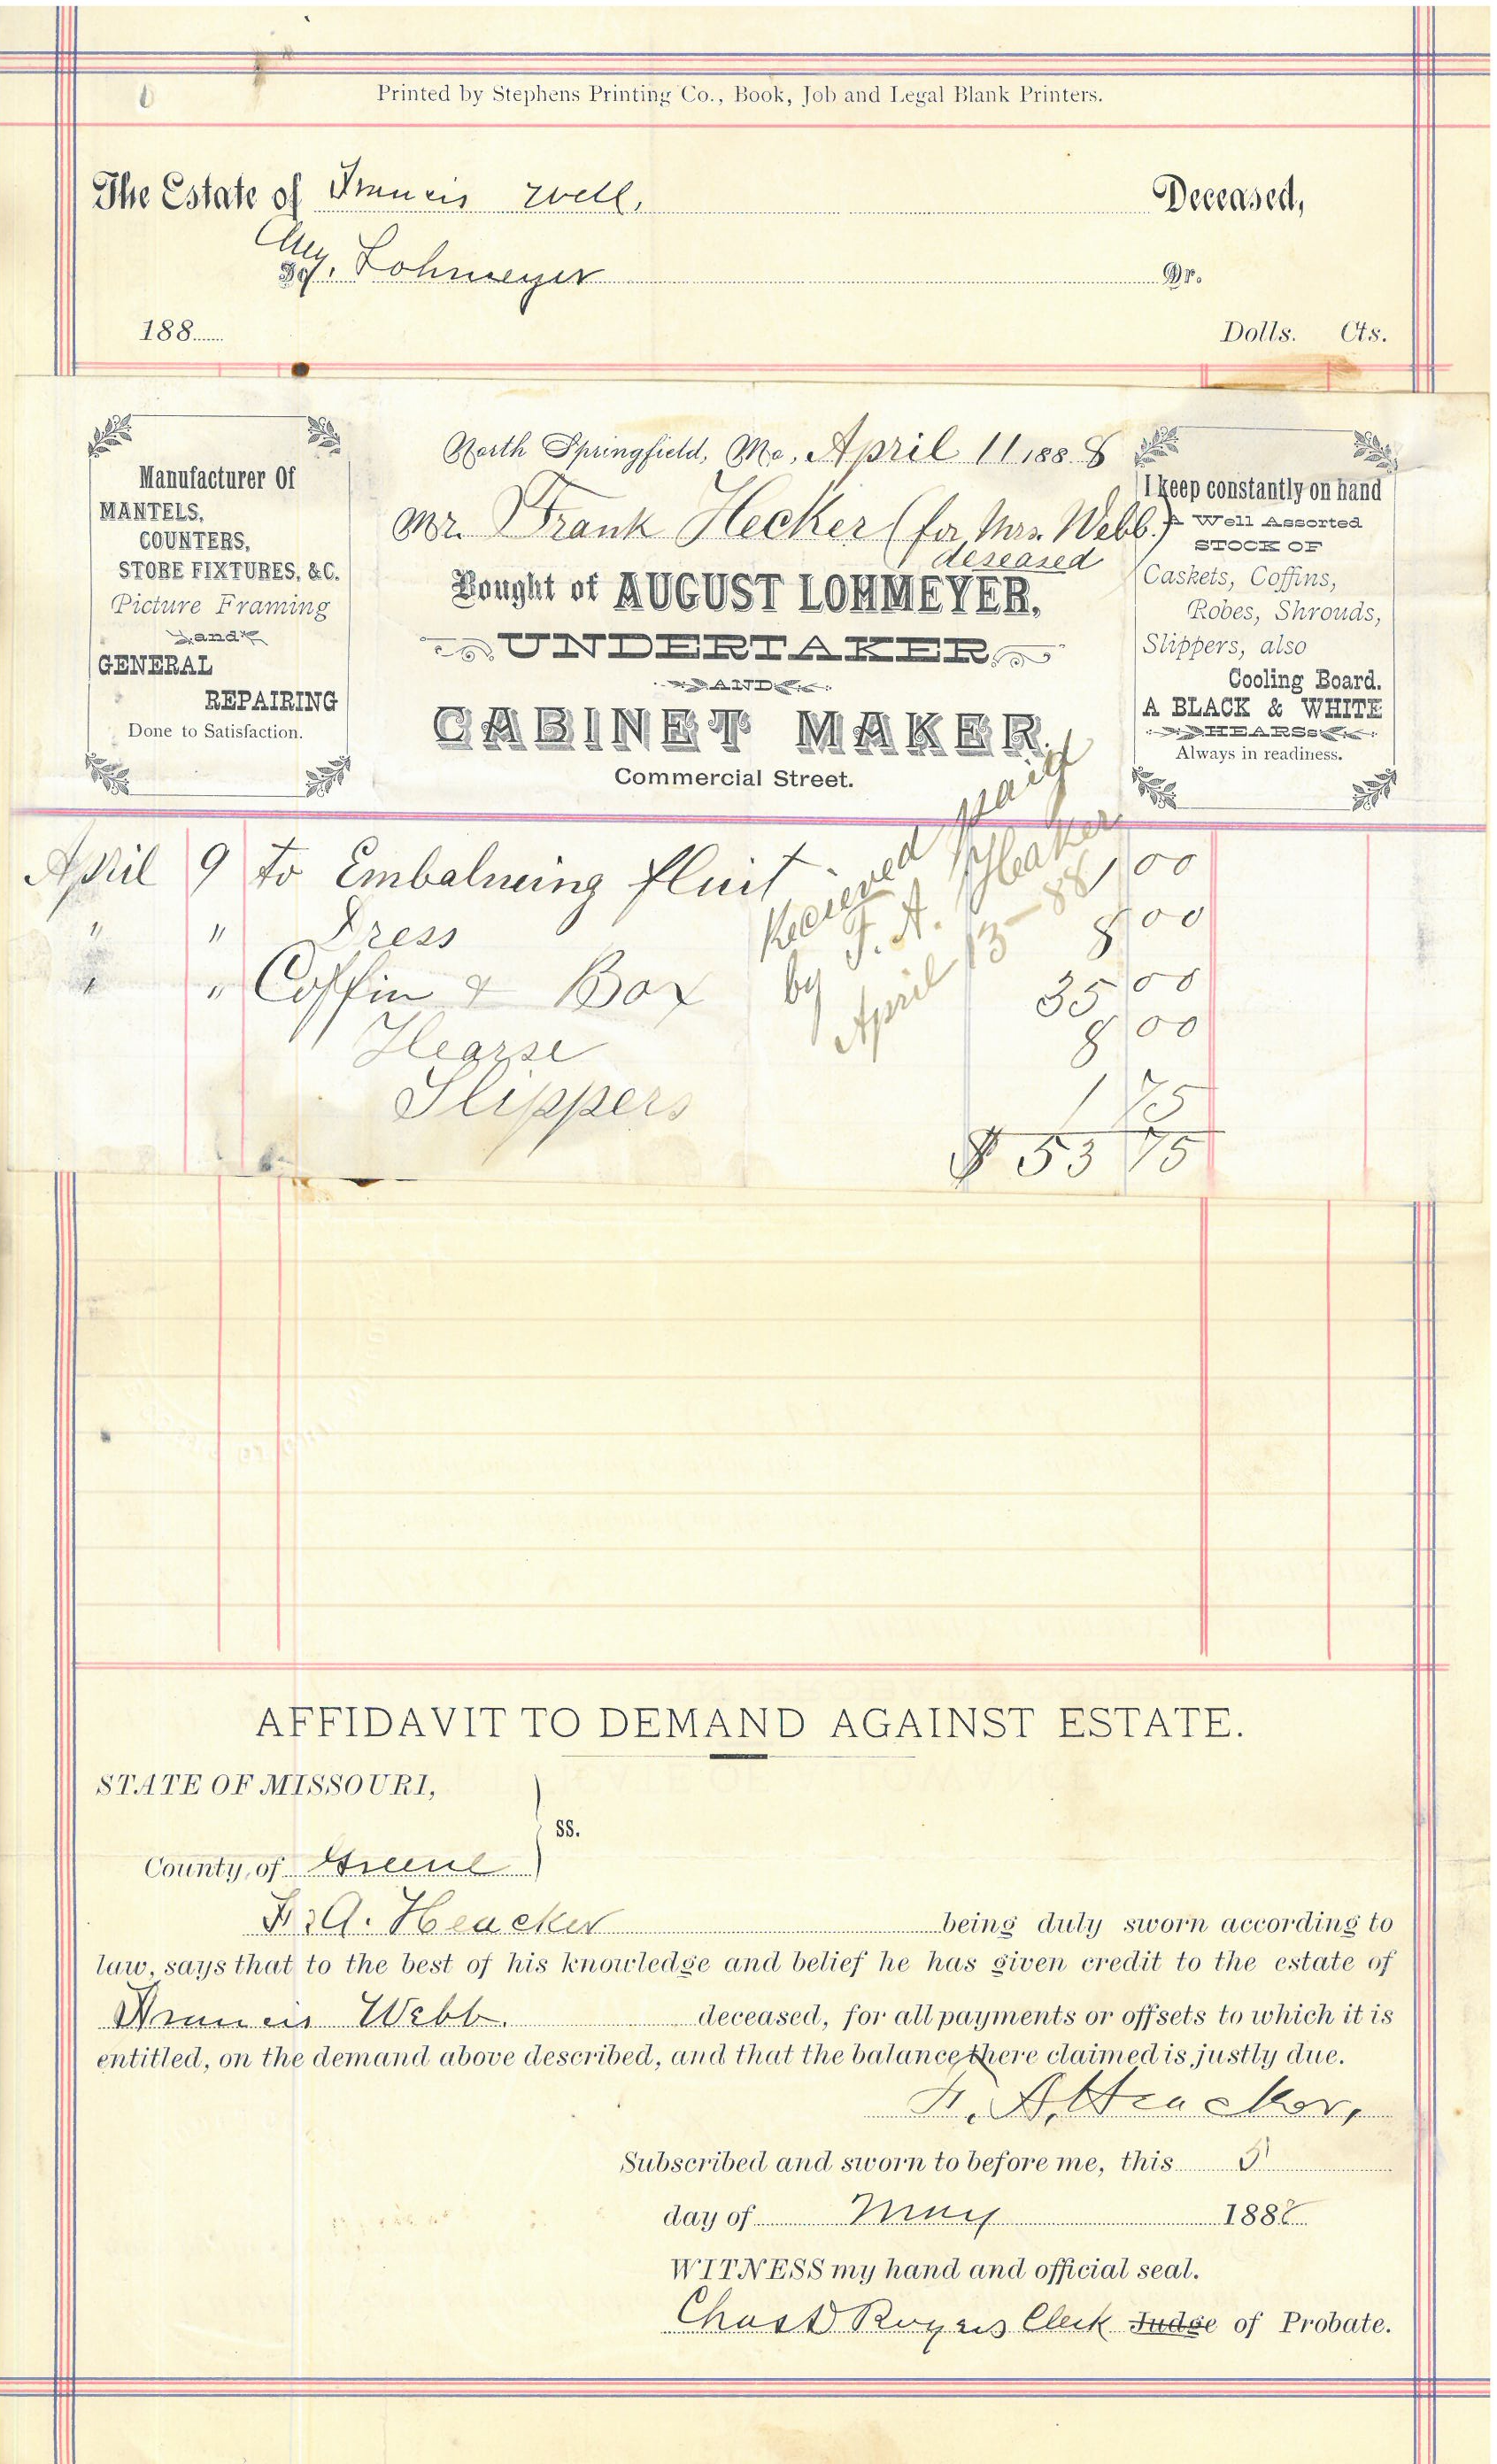 Printed by Stephens Printing Co., Book, Job and Legal Blank Printers.
The Estate of Francis Deceased,
Lohmeyer Dr.
188 Dolls. Cts.
Manufacturer Of
MANTELS,
COUNTERS,
STORE FIXTURES, &C.
Picture Framing
and
GENERAL
REPAIRING
Done to Satisfaction.
North Springfield, Mo., April 11 1888
Mr. Frank Hecker (for Mrs. Webb)
deseased
Bought of AUGUST LOHMEYER,
UNDERTAKER
AND
CABINET MAKER.
Commercial Street.
I keep constantly on hand
A Well Assorted
STOCK OF
Caskets, Coffins,
Robes, Shrouds,
Slippers, also
Cooling Board.
A BLACK & WHITE
HEARSE
Always in readiness.
April 9 to Embalmeing fluit 1 00
" " Dress 8 00
" " Coffin & Box 35 00
Hearse 8 00
Slippers 1 75
$ 53 75
Recieved paid
by F. A. Heaker
April 13-88
AFFIDAVIT TO DEMAND AGAINST ESTATE.
STATE OF MISSOURI,
ss.
County of Greene
F. A. Heacker being duly sworn according to
law, says that to the best of his knowledge and belief he has given credit to the estate of
Francis Webb. deceased, for all payments or offsets to which it is
entitled, on the demand above described, and that the balance there claimed is justly due.
F. A. Heacker,
Subscribed and sworn to before me, this 5
day of May 1888
WITNESS my hand and official seal.
Chas D Rogers Clerk Judge of Probate.